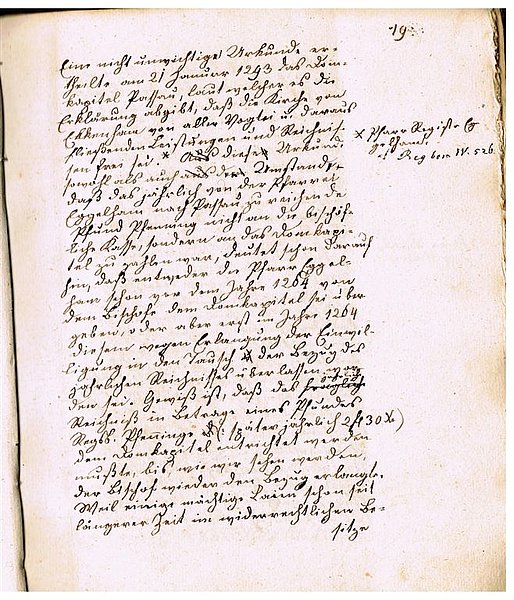 19
Eine nicht unwichtige Urkunde er-
theilte am 21 Januar 1293 das Dom-
kapitel Passau, laut welcher es die
Erklärung abgibt, daß die Kirche von
Ekkenham von aller Vogtei u. daraus
fließenden Leistungen und Reichnis-
sen frei sei. * Aus dieser Urkunde
sowohl als auch aus dem Umstande,
daß das jährlich von der Pfarrei
Eggelham nach Passau zu reichende
Pfund Pfenning nicht an die bischöf-
liche Kasse, sondern an das Domkapi-
tel zu zahlen war, deutet schon darauf
hin, daß entweder die Pfarr Eggel-
ham schon vor dem Jahre 1264 von
dem Bischofe dem Domkapitel sei über-
geben, oder aber erst im Jahre 1264
diesem wegen Erlangung der Einwil-
ligung in den Tausch der Bezug des
jährlichen Reichnisses überlassen wor-
den sei. Gewiß ist, daß das
Reichniß im Betrage eines Pfundes
Regsb. Pfeninge (später jährlich 2 fl 30 X)
dem Domkapitel entrichtet werden
mußte, bis, wie wir sehen werden,
der Bischof wieder den Bezug erlangte.
Weil einige mächtige Laien schon seit
längerer Zeit im widerrechtlichen Be-
sitze
x Pfarr Registr. Eg
gelham,
Reg boic IV. 526